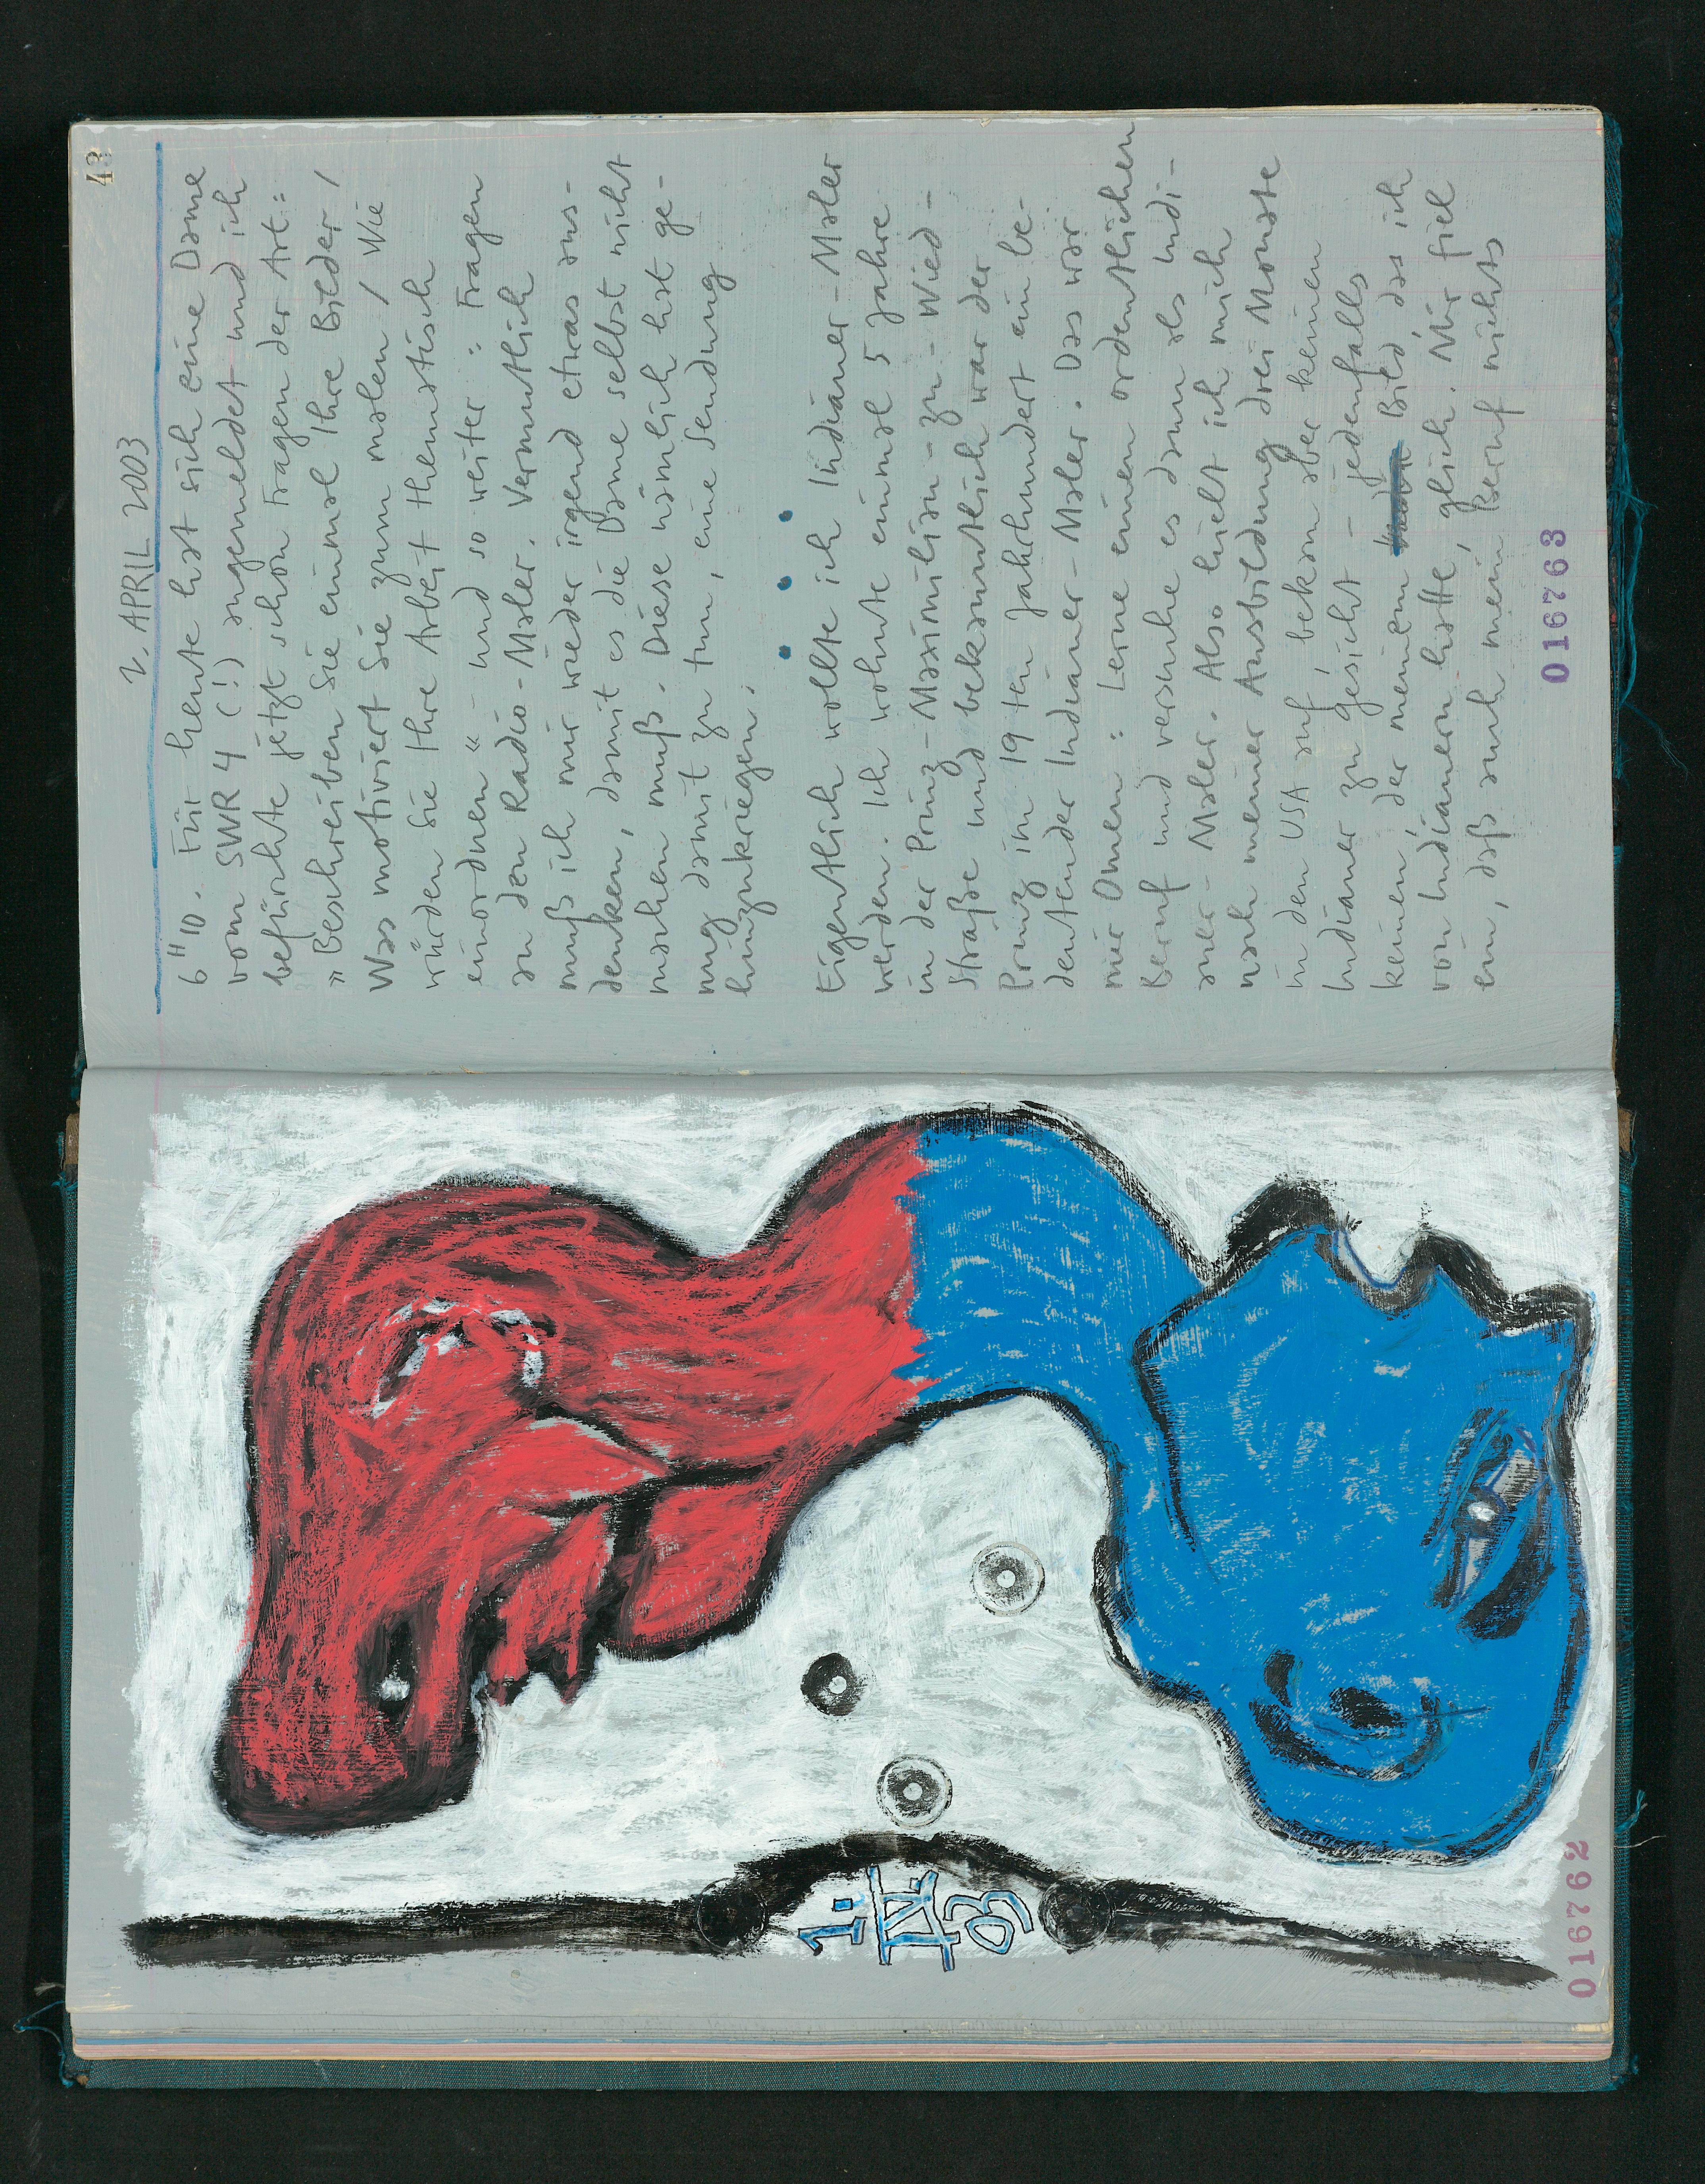 1.
IV.
03
016762
43
2. APRIL 2003
6"10. Für heute hat sich eine Dame
vom SWR 4 (!) angemeldet und ich
befürchte jetzt schon Fragen der Art:
„Beschreiben Sie einmal Ihre Bilder /
Was motiviert Sie zum malen / Wie
würden Sie Ihre Arbeit thematisch
einordnen“ – und so weiter: Fragen
an den Radio-Maler. Vermutlich
muß ich mir wieder irgend etwas aus-
denken, damit es die Dame selbst nicht
machen muß. Diese nämlich hat ge-
nug damit zu tun, eine Sendung
hinzukriegen.
Eigentlich wollte ich Indianer-Maler
werden. Ich wohnte einmal 5 Jahre
in der Prinz-Maximilian-zu-Wied-
Straße und bekanntlich war der
Prinz im 19ten Jahrhundert ein be-
deutender Indianer-Maler. Das war
mir Omen: Lerne einen ordentlichen
Beruf und versuche es dann als Indi-
aner-Maler. Also hielt ich mich
nach meiner Ausbildung drei Monate
in den USA auf, bekam aber keinen
Indianer zu Gesicht – jedenfalls
keinen, der meinem Bild das ich
von Indianern hatte, glich. Mir fiel
ein, daß auch mein Beruf nichts
016763